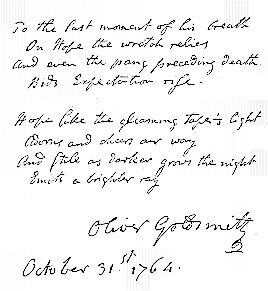 To the last moment of his breath
On Hope the wretch relies
And even the pang preceding death
Bids Expectation rise.
Hope like the gleaming taper's light
Adorns and chears our way
And still as darker grows the night
Emits a brighter ray
Oliver Goldsmith
October 31st 1764.